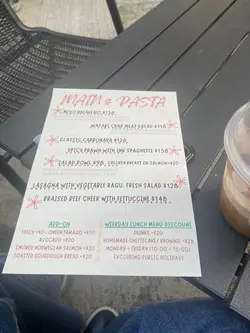 MAIN & PASTA
MINI BREAKFAST $138
WAFARI CRAB MEAT SALAD $118
CLASSIC CARBONARA $128
SPICY PRAWN WITH INK SPAGHETTI $138
SALAD BOWL $98 CHICKEN BREAST OR SALMON+$20
LASAGNA WITH VEGETABLE RAGU, FRESH SALAD $128
BRAISED BEEF CHEEK WITH FETTUCCINE $148
ADD-ON
AVOCADO +$20
SMOKED NORWEGIAN SALMON +$20
TOASTED SOURDOUGH BREAD +$20
WEEKDAY LUNCH MENU DISCOUNT
DRINKS -$20
HOMEMADE CHEESECAKE/ BROWNIE -$28
MONDAY - FRIDAY (10:00 - 15:00)
EXCLUDING PUBLIC HOLIDAYS